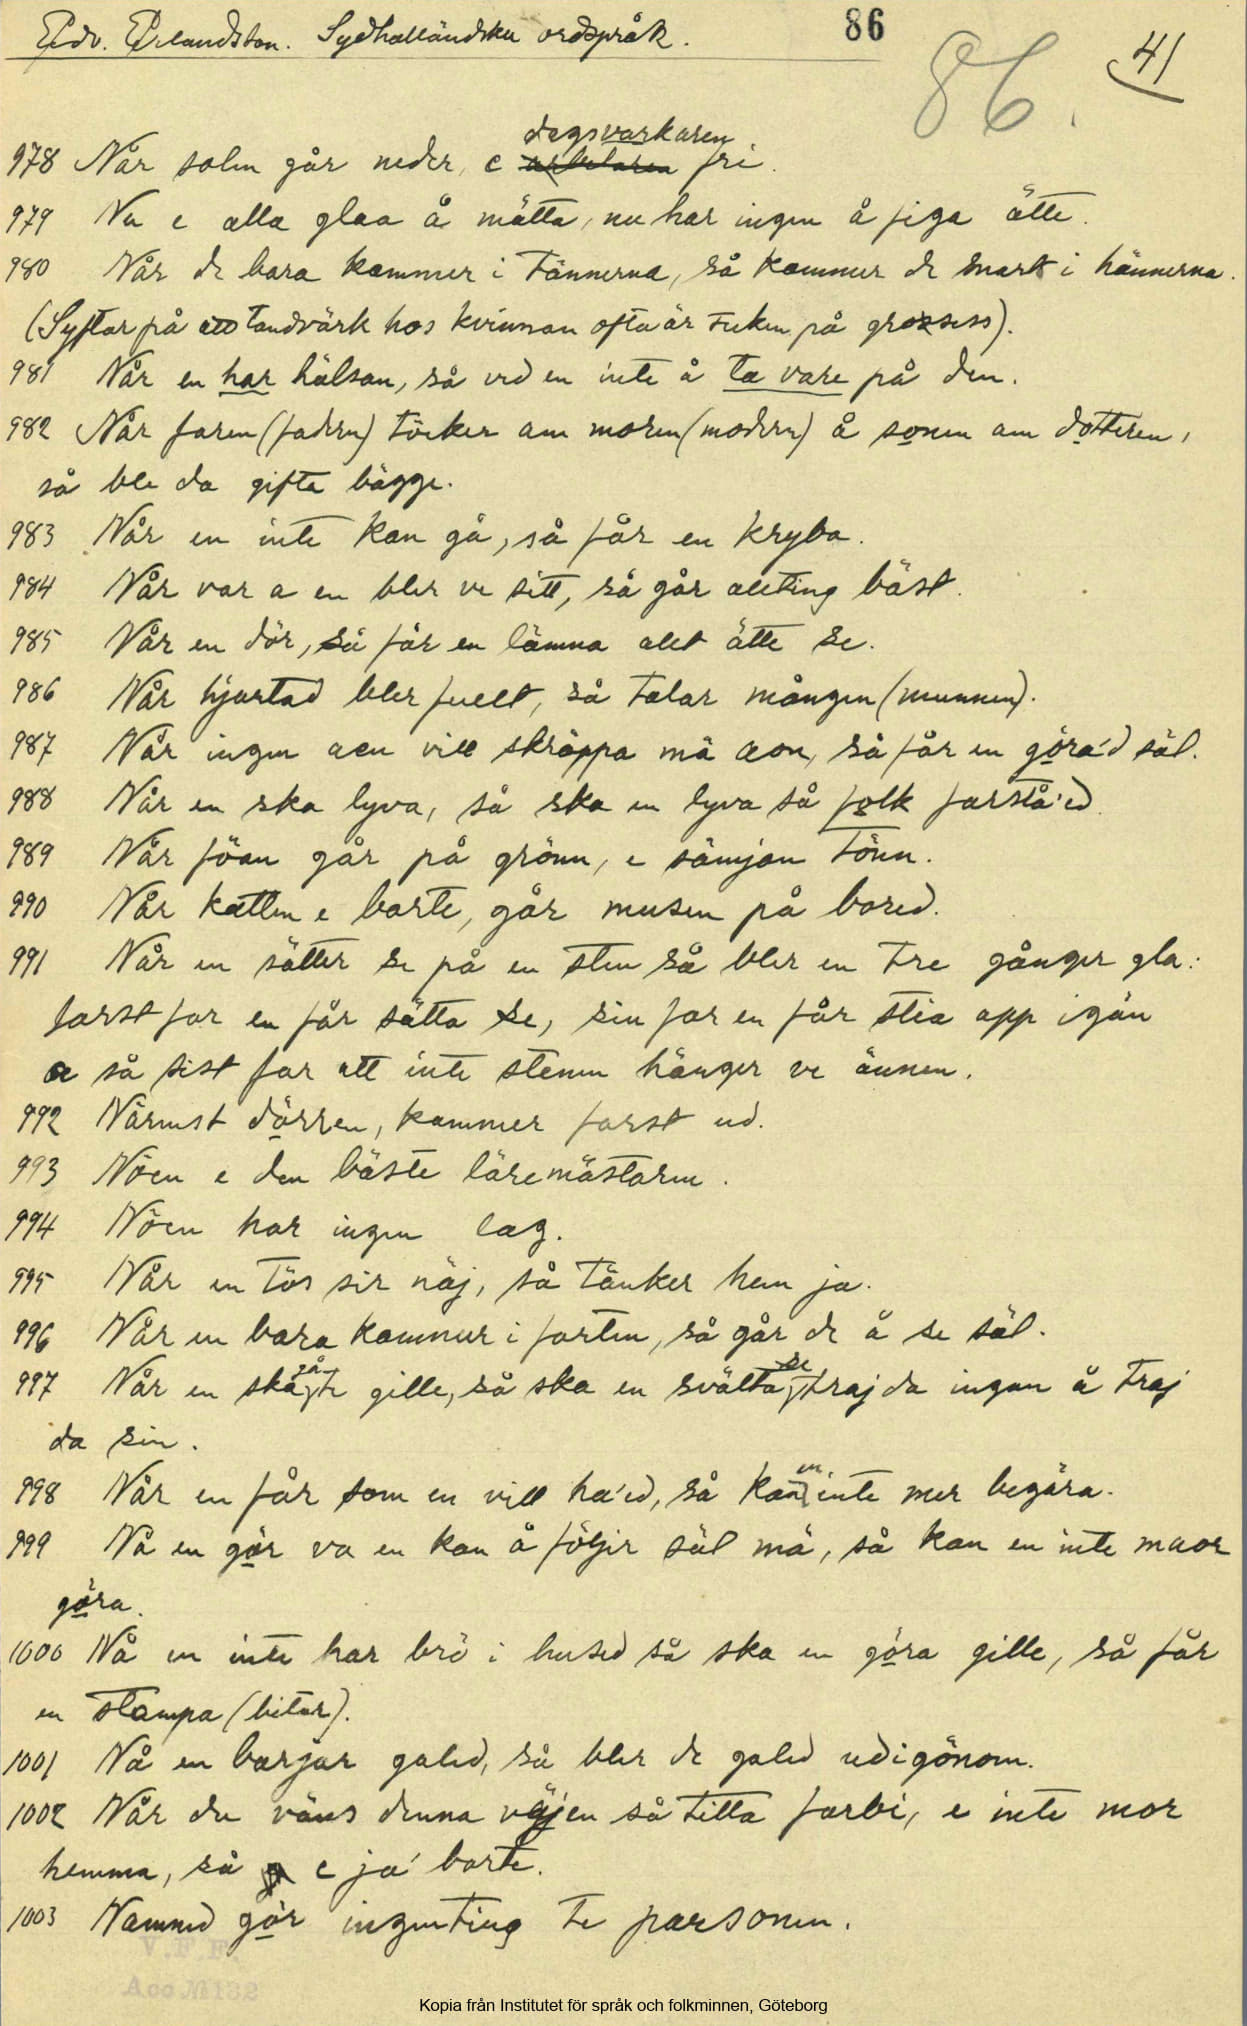 Edv. Erlandsson. Sydhalländska ordspråk.
86
86.
41
dagsvarkaren
978 Når solen går neder, e arbetaren fri.
979 Nu e alla glaa å mätta, nu har ingen å figa ätte.
980 Når de bara kammer i tännerna, så kommer de snart i hännerna.
(Syftar på att tandvärk hos kvinnan ofta är tecken på grossess).
981 Når en har hälsan, så ved en inte å ta vare på den.
982 Når faren (fadern) töcker am moren (modern) å sonen am dotteren,
så ble da gifta bägge.
983 Når en inte kan gå, så får en kryba.
984 Når var a en bler ve sitt, så går aliting bäst.
985 Når en dör, så får en lämna allt ätte se.
986 Når hjartad bler fullt, så talar mången (munnen).
987 Når ingen aen vill skräppa mä aon, så får en göra'd säl.
988 Når en ska lyva, så ska en lyva så folk farstå'ed.
989 Når föan går på grönn, e sämjan tönn.
990 Når katten e barte, går musen på bored.
991 Når en sätter se på en sten så bler en tre gånger gla:
farst far en får sätta se, sin far en får stia app igän
a så sist far att inte stenen hänger ve ännen.
992 Närmst dörren, kammer farst ud.
993 Nöen e den bäste läremästaren.
994 Nöen har ingen lag.
995 Når en tös sir näj, så tänker hun ja.
996 Når en bara kammer i farten, så går de å se säl.
997 Når en ska gå te gille, så ska en svälta se traj da ingan å traj
da sin.
998 Når en får som en vill ha'ed, så kan en inte mer begära.
999 Nå en gör va en kan å följer säl mä, så kan en inte maor
göra.
1000 Nå en inte har brö i hused så ska en göra gille, så får
en stampa (bitar).
1001 Nå en barjar galed, så bler de galed udigönom.
1002 Når du väns denna väjen så titta farbi, e inte mor
hemma, så e ja' barte.
1003 Namned gör ingenting te parsonen.
V.F.F.
Acc. № 132
Kopia från Institutet för språk och folkminnen, Göteborg